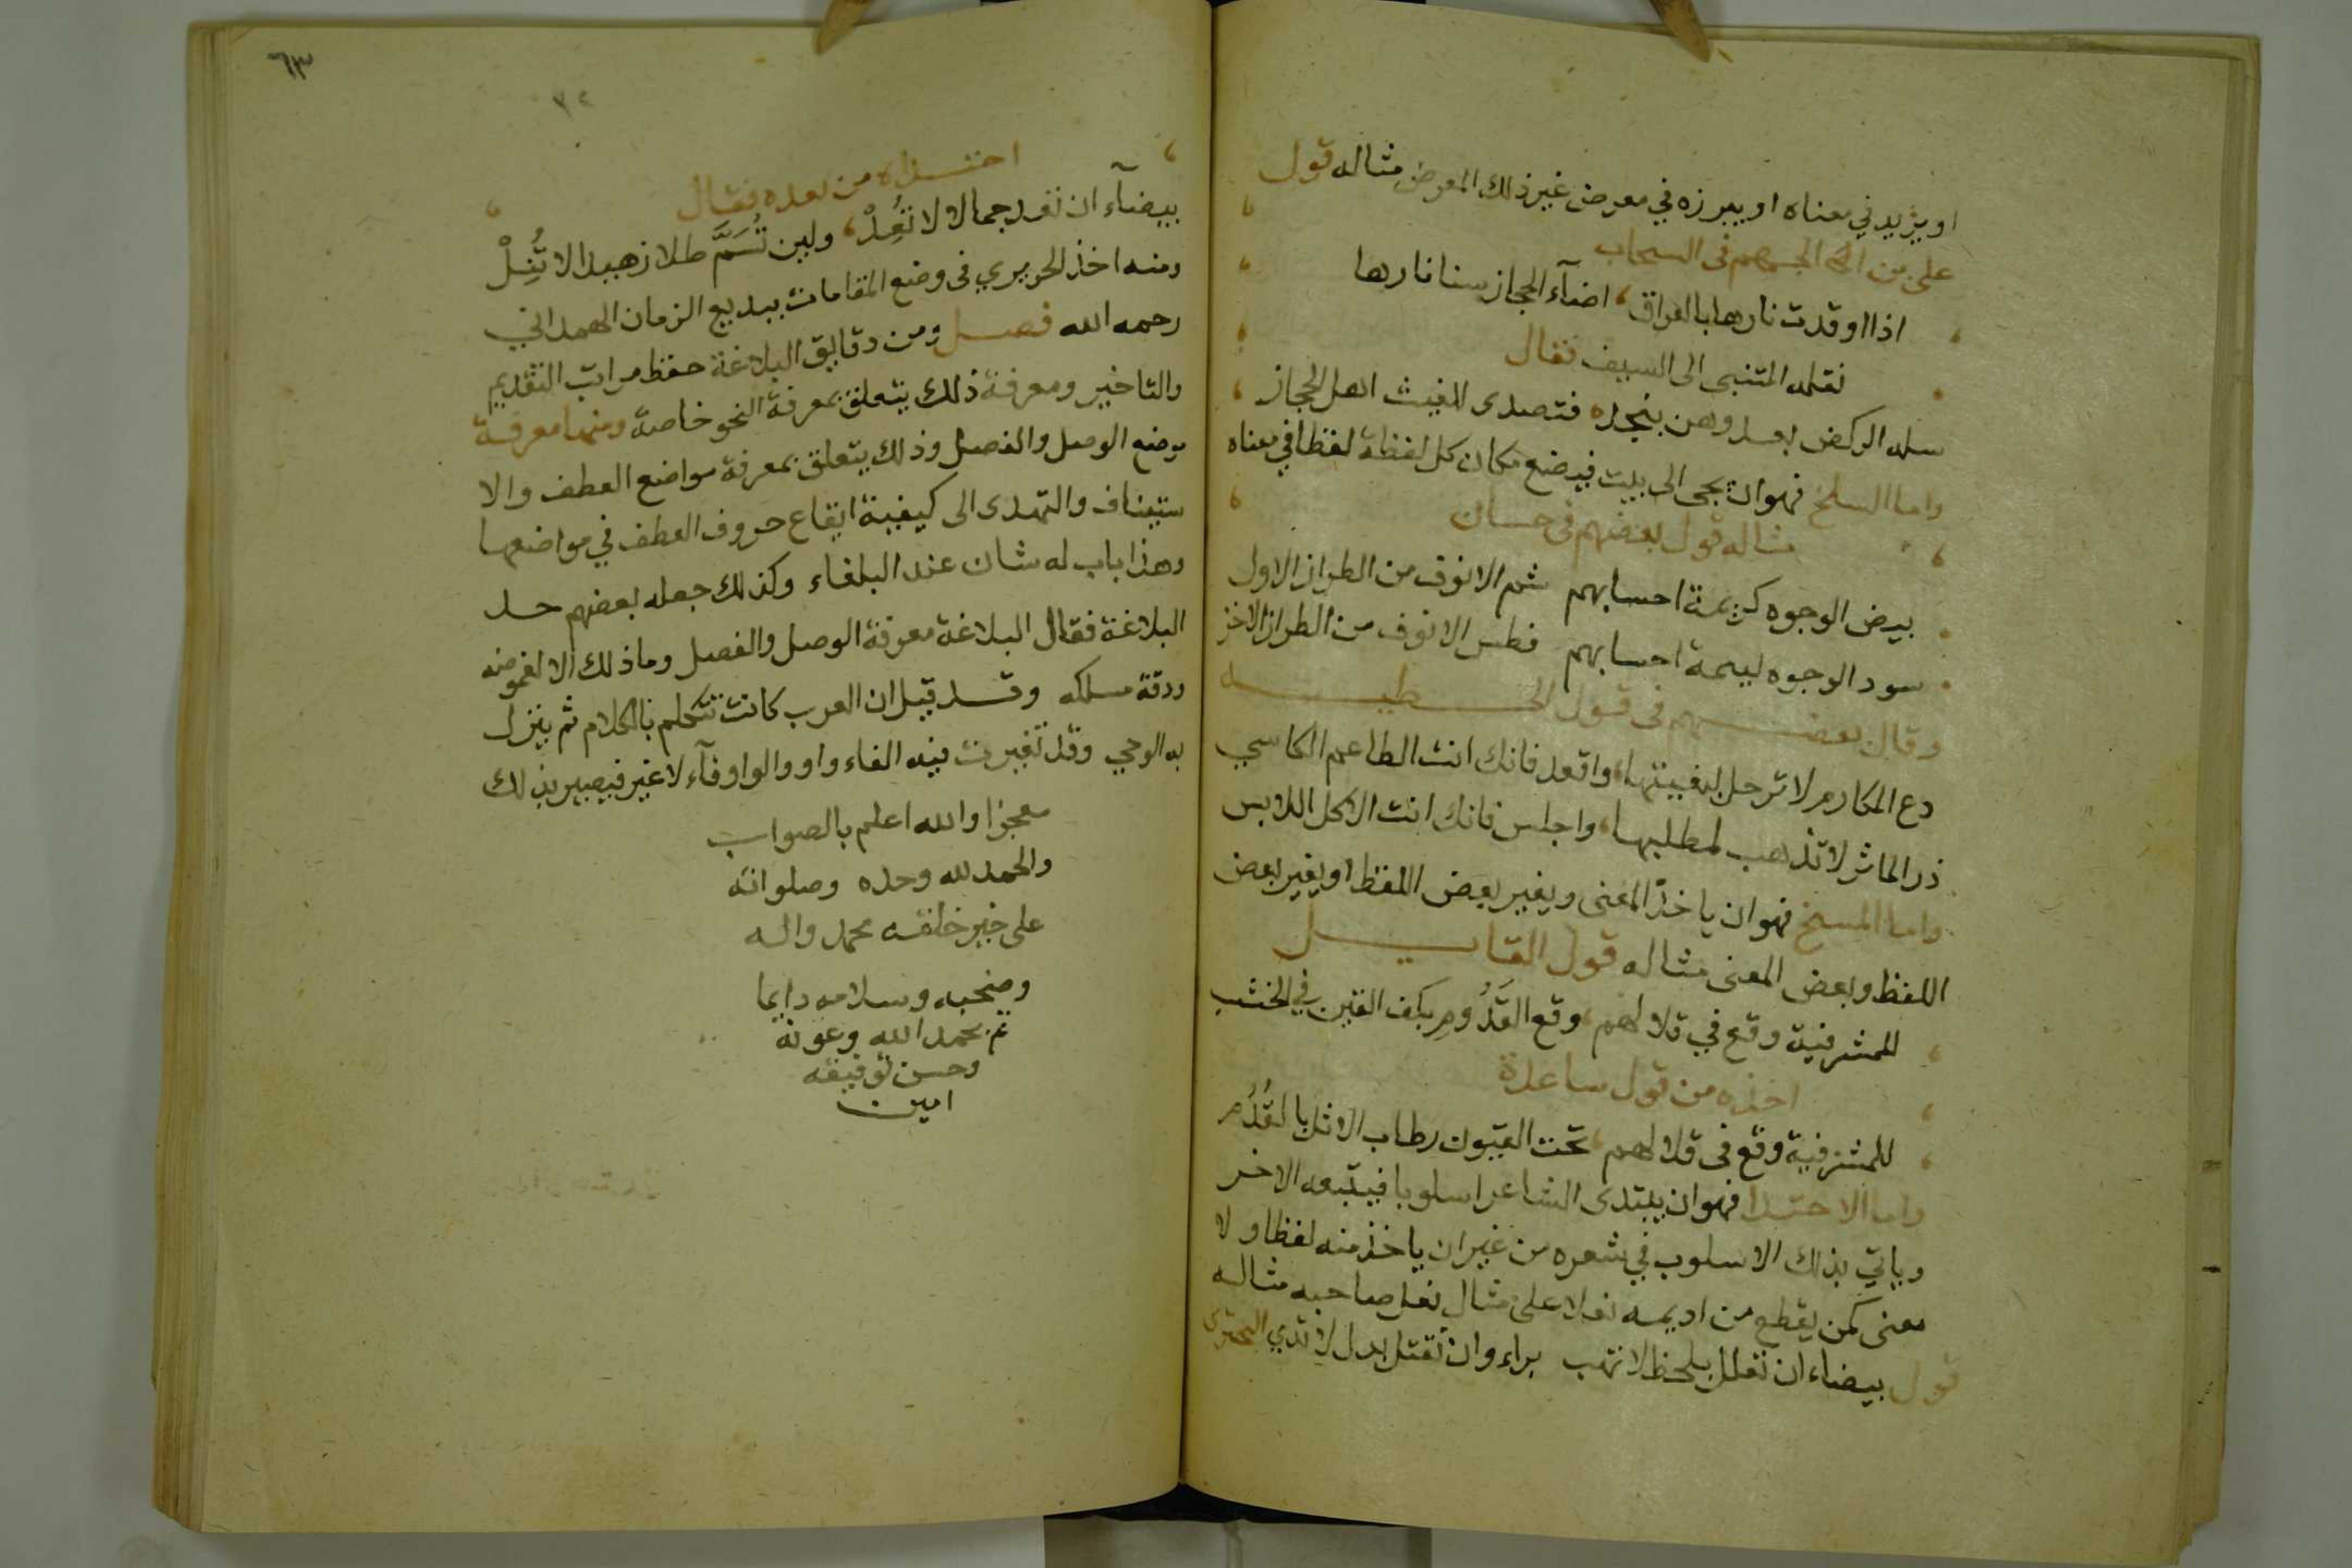 او يزيد في معناه او يبرزه في معرض غير ذلك المعرض مثاله قول
على بن الجهم في السحاب
اذا اوقدت نارها بالعراق، اضآء الحجاز سنا نارها
نقله المتنبى الى السيف فقال
سله الركض بعد وهن بنجد، فتصدى للغيث اهل الحجاز
واما السلخ فهو ان يجى الى بيت فيضع مكان كل لفظة لفظا في معناه
مثاله قول بعضهم في حسان
بيض الوجوه كريمة احسابهم شم الانوف من الطراز الاول
سود الوجوه ليمة احسابهم فطس الانوف من الطراز الاخر
وقال بعضهم في قول الحطيه
دع المكارم لا ترحل لبغيتها، واقعد فانك انت الطاعم الكاسي
ذر الماثر لا تذهب لمطلبها، واجلس فانك انت الاكل اللابس
واما المسخ فهو ان ياخذ المعنى ويغير بعض اللفظ او يغير بعض
اللفظ وبعض المعنى مثاله قول القايل
للمشرفية وقع في قلالهم، وقع القدوم بكف القين في الخشب
اخذه من قول ساعدة
للمشرفية وقع في قلالهم، تحت القيون رطاب الاثل بالقدم
واما الاحتذا فهو ان يبتدى الشاعر اسلوبا فيتبعه الاخر
وياتي بذلك الاسلوب في شعره من غير ان ياخذ منه لفظا ولا
معنى كمن يقطع من اديمه نعلا على مثال نعل صاحبه مثاله
قول بيضاء ان تعلل بلحظ لا تهب براء وان تقتل بدل لا تدي البحتري
٦٣
احتذاه من بعده فقال
بيضآء ان تفد جمالا لا تعد، ولين تسم طلا زهيدا لا تنل
ومنه اخذ الحريري في وضع المقامات ببديع الزمان الهمداني
رحمه الله فصل ومن دقايق البلاغة حفظ مراتب التقديم
والتاخير ومعرفة ذلك يتعلق بمعرفة النحو خاصة ومنها معرفة
موضع الوصل والفصل وذلك يتعلق بمعرفة مواضع العطف والا
ستيناف والتهدى الى كيفية ايقاع حروف العطف في مواضعها
وهذا باب له شان عند البلغاء وكذلك جعله بعضهم حد
البلاغة فقال البلاغة معرفة الوصل والفصل وما ذلك الا لغموضه
ودقة مسلكه وقد قيل ان العرب كانت تتكلم بالكلام ثم ينزل
به الوحي وقد تغيرت فيه الفاء واو والواو فآء لا غير فيصير بذلك
معجزا والله اعلم بالصواب
والحمد لله وحده وصلواته
على خير خلقه محمد واله
وصحبه وسلامه دايما
تم بحمد الله وعونه
وحسن توفيقه
امين